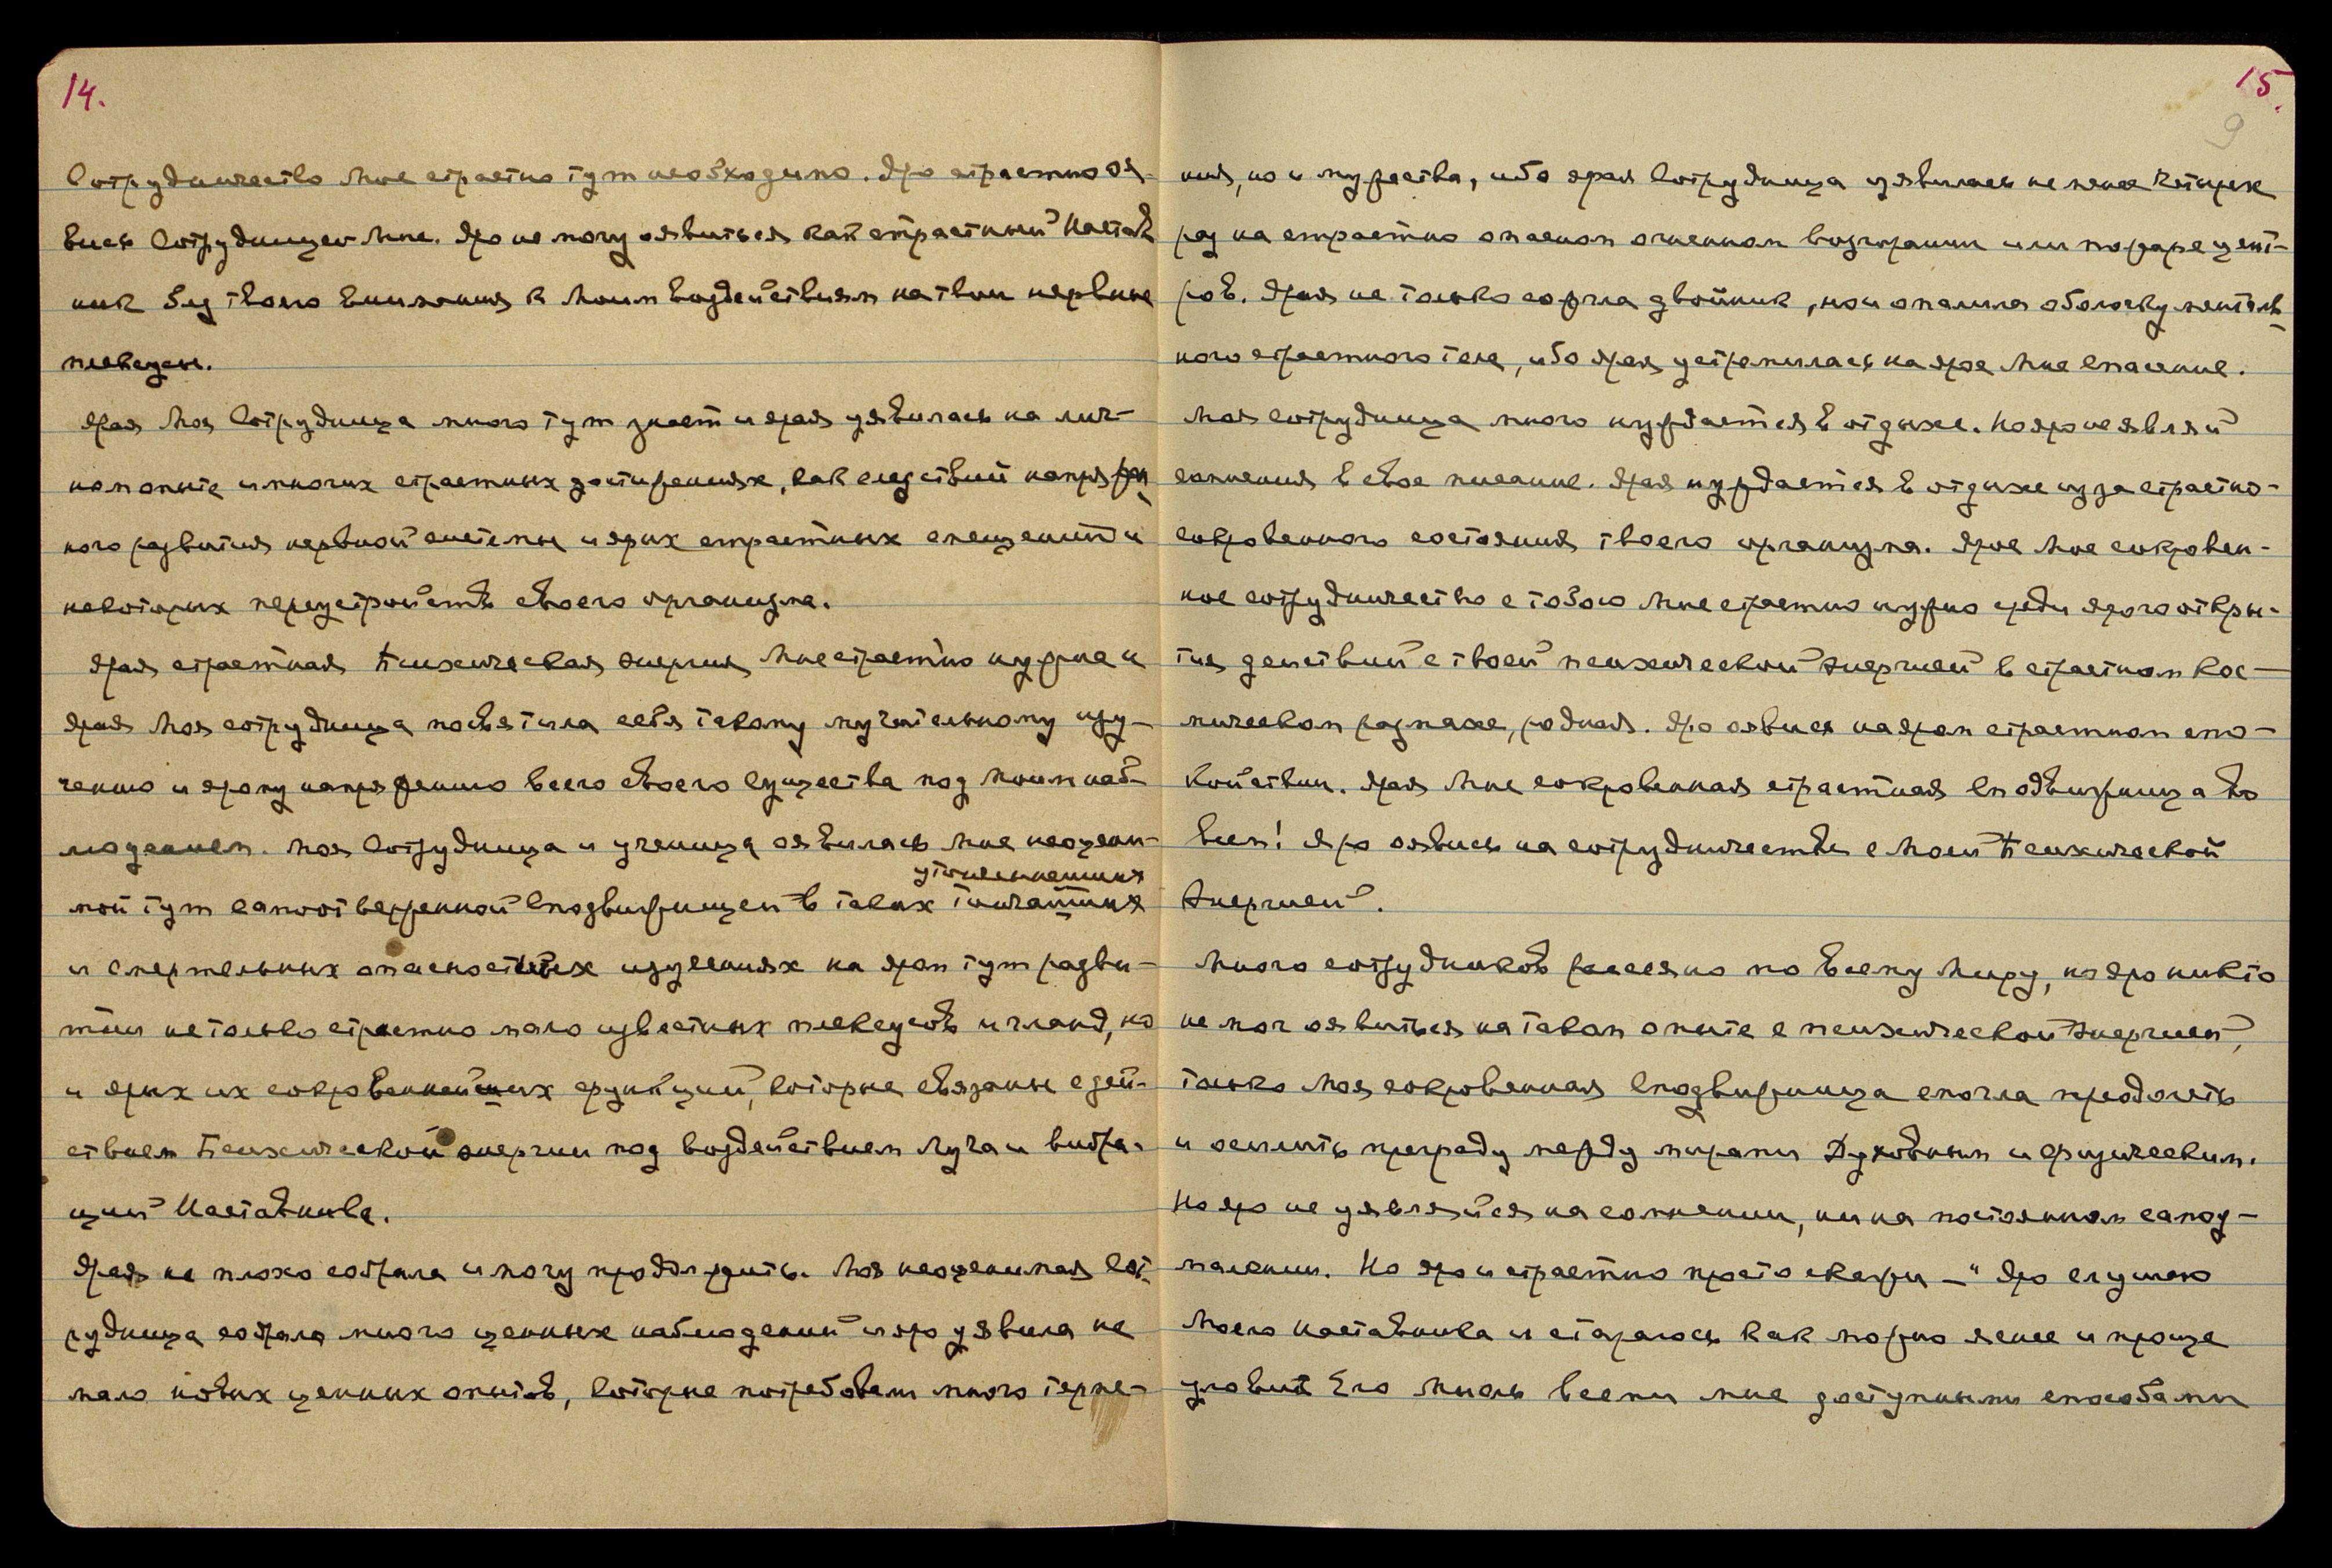 14.
Сотрудничество Мне страстно тут необходимо. Яро страстно оя-
вись Сотрудницей Мне. Яро не могу оявиться как страстный Настав
ник без твоего внимания к Моим воздействиям на твои нервные
плексусы.
Ярая Моя Сотрудница много тут знает и ярая уявилась на лич-
ном опыте и многих страстных достижениях, как следствий напряжен
ного развития нервной системы и ярых страстных смещений и
некоторых переустройств своего организма.
Ярая страстная Психическая энергия Мне страстно нужна и
ярая Моя сотрудница посвятила себя такому мучительному изу-
чению и ярому напряжению всего своего Существа под Моим наб-
людением. Моя Сотрудница и ученица оявилась Мне неоцени-
утонченнейших
мой тут самоотверженной Сподвижницей в таких тончайших
и смертельных опасностях изучениях на яром тут разви-
тии не только страстно мало известных плексусов и гланд, но
и ярых их сокровеннейших функций, которые связаны с дей-
ствием Психической энергии под воздействием Луча и вибра-
ций Наставника.
Ярая не плохо собрала и могу продолжить. Моя неоценимая Сот-
рудница собрала много ценных наблюдений и яро уявила не
мало новых ценных опытов, которые потребовали много терпе-
15.
9
ния, но и мужества, ибо ярая Сотрудница уявилась не менее четырех
раз на страстно опасном огненном возгорании или пожаре цент-
ров. Ярая не только сожгла двойник, но и опалила оболочку менталь
ного страстного тела, ибо ярая устремилась на ярое Мне спасение.
Моя сотрудница много нуждается в отдыхе. Но яро не являй
сомнения в свое писание. Ярая нуждается в отдыхе из за страстно-
сокровенного состояния твоего организма. Ярое Мне сокровен-
ное сотрудничество с тобою Мне страстно нужно среди ярого откры-
тия действий с твоей психической энергией в страстном Кос-
мическом размахе, родная. Яро оявися на яром страстном спо-
койствии. Ярая Мне сокровенная страстная Сподвижница во
всем! Яро оявись на сотрудничестве с Моей Психической
Энергией.
Много сотрудников рассеяно по всему Миру, но яро никто
не мог оявиться на таком опыте с психической энергией,
только Моя сокровенная Сподвижница смогла преодолеть
и осилить преграду между мирами Духовным и физическим.
Но яро не уявляйся на сомнении, ни на постоянном самоу-
малении. Но яро и страстно просто скажи — "Яро слушаю
Моего наставника и стараюсь как можно яснее и проще
уловить Его Мысль всеми мне доступными способами